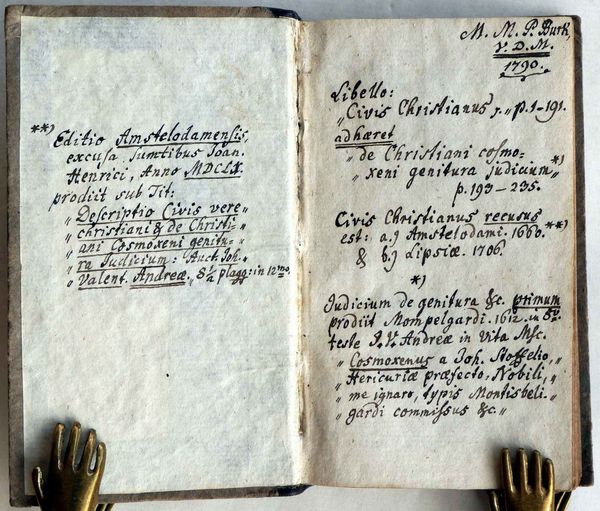 **)
Editio Amstelodamensis,
excusa Sumtibus Joan.
Henrici, Anno MDCLX.
prodiit sub Tit:
„Descriptio Civis vere„
„christiani & de Christi„
„ani Cosmoxeni genitu-„
„ra Judicium: Auct. Joh.„
„Valent. Andreæ, 8½ plagg: in 12mo.
M. M. P. Burk,
V. D. M.
1790.
Libello:
„Civis Christianus„ p. 1-191.
adhæret
„de Christiani cosmo-
„xeni genitura judicium„ *)
p. 193-235.
Civis Christianus recusus
est: a.) Amstelodami. 1660. **)
& b.) Lipsiæ. 1706.
*)
Judicium de genitura &c. primum
prodiit Mompelgardi. 1612. in 8v.
teste J. V. Andreæ in Vita Msc.
„Cosmoxenus a Joh. Stoffelio,„
„Hericuriæ præfecto, Nobili,„
„me ignaro, typis Montisbeli-„
„gardi commissus &c.„